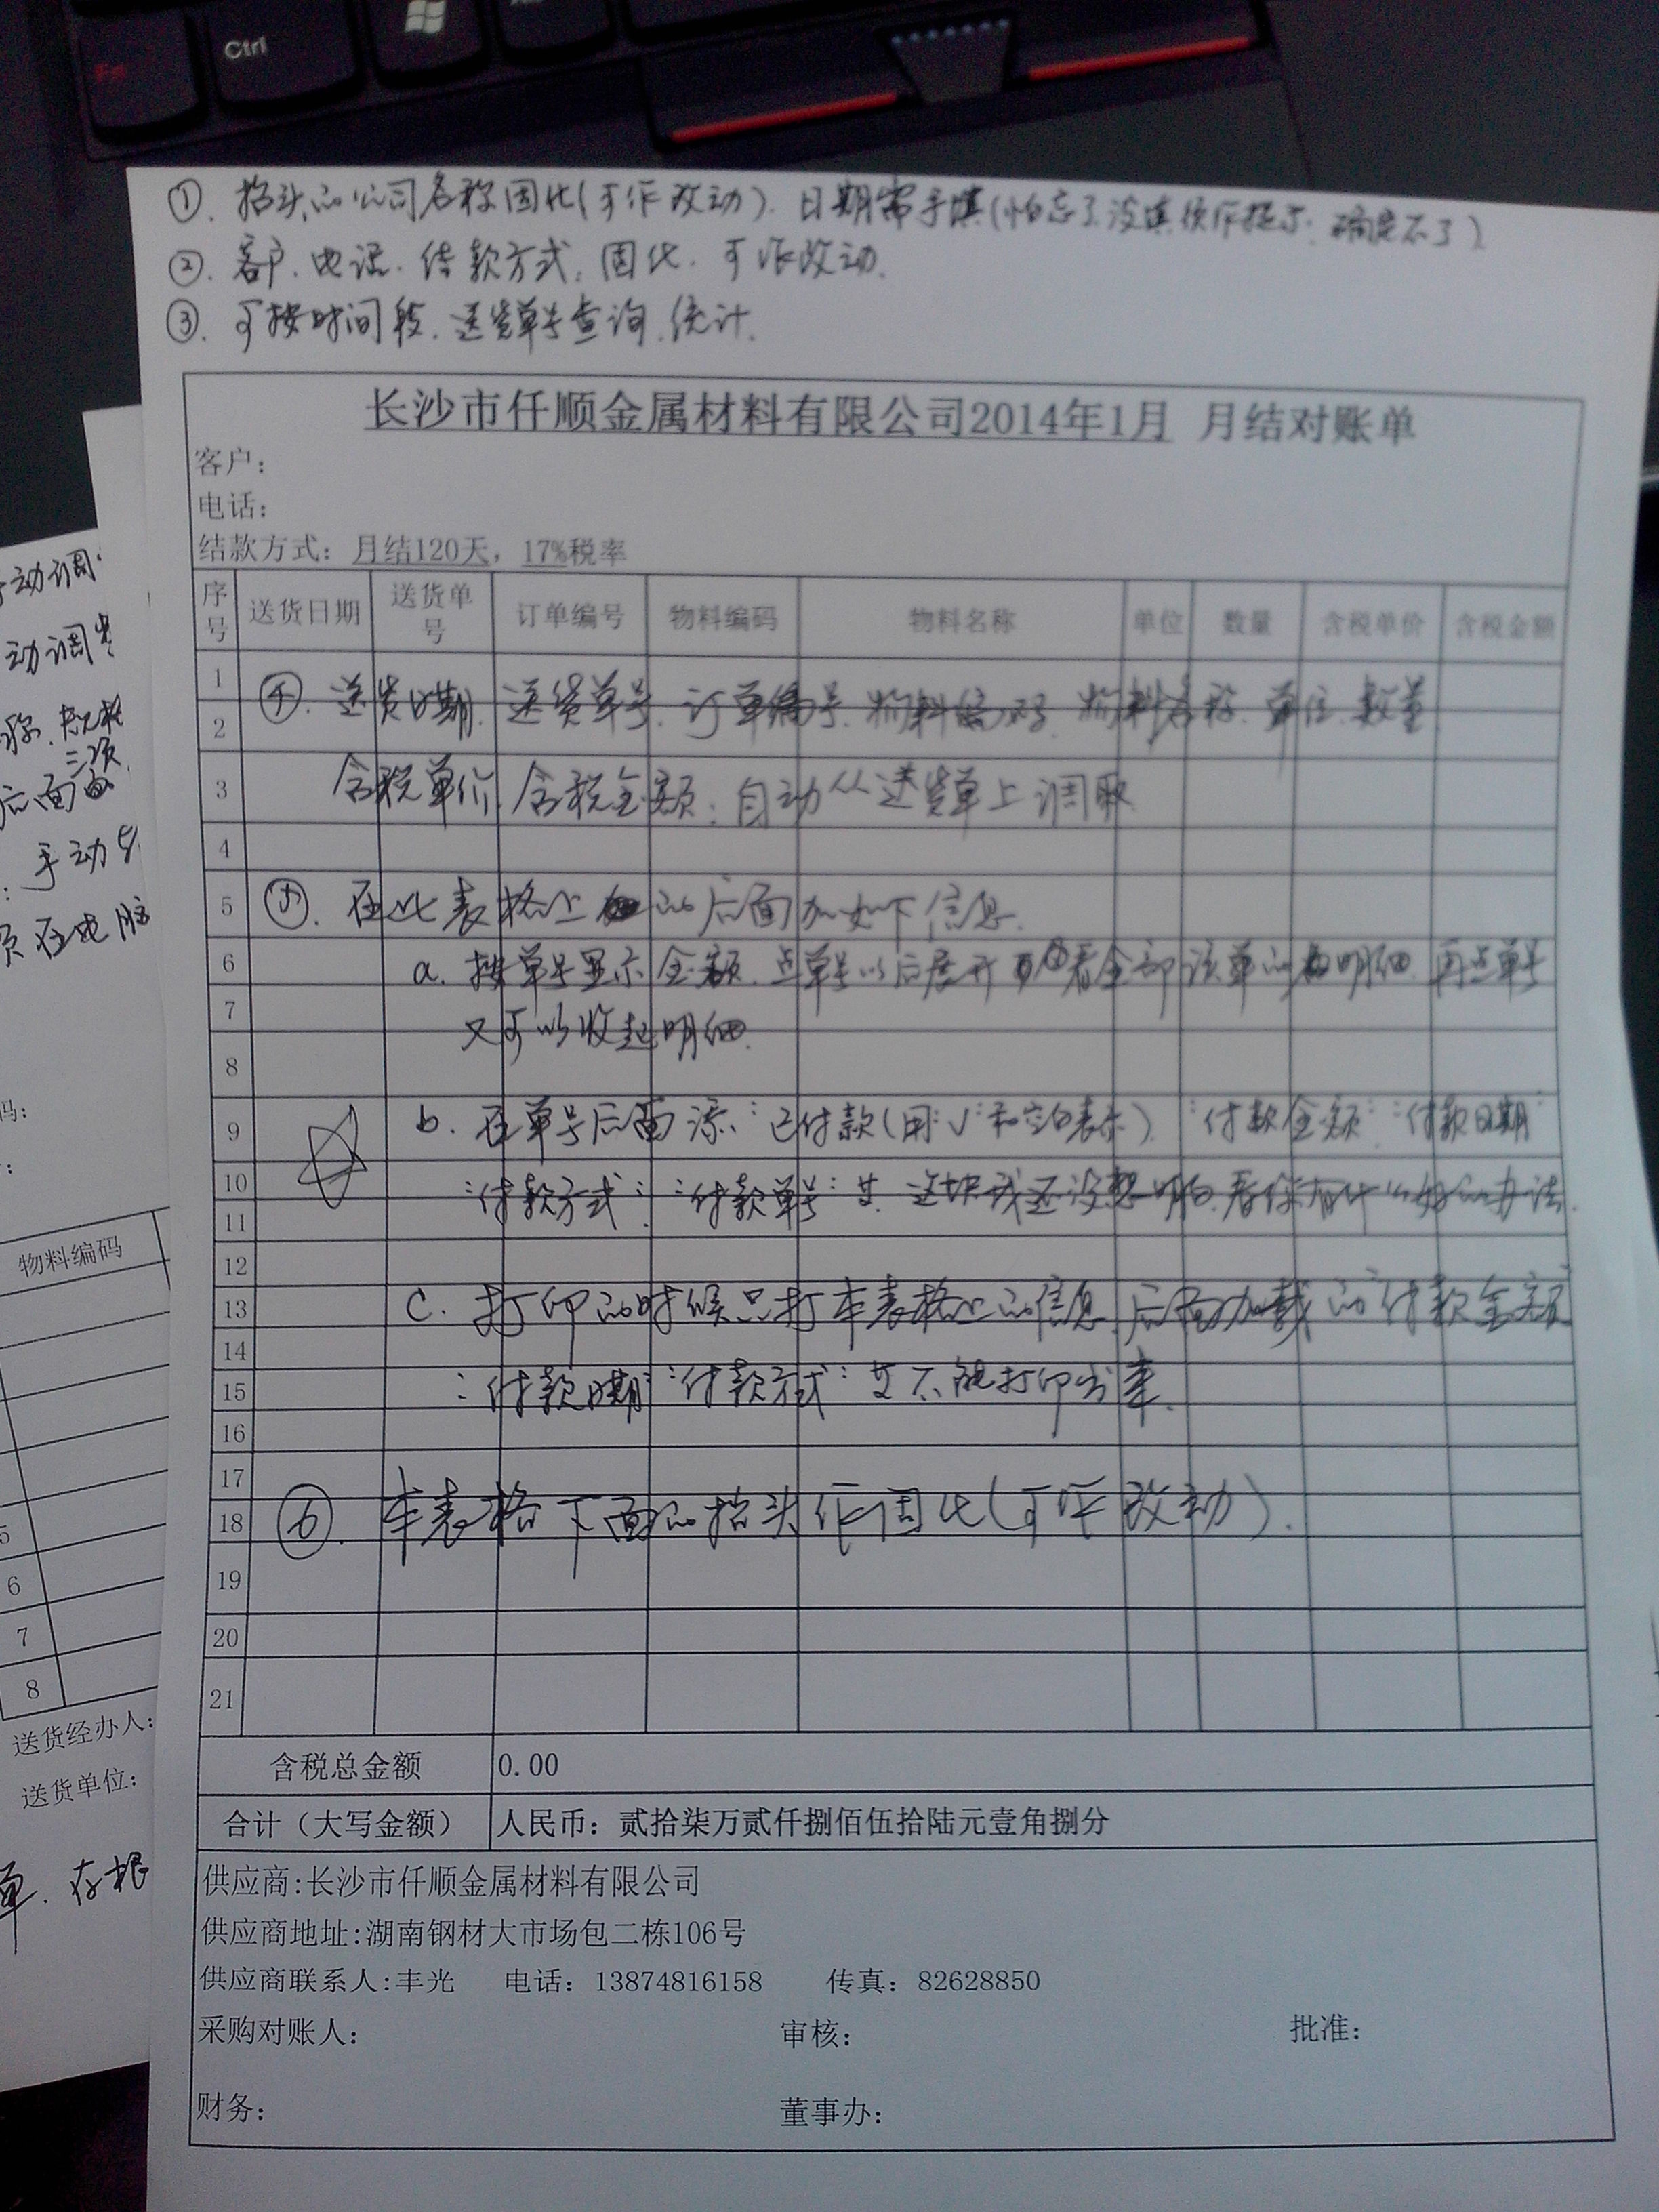 Fn
Ctrl
①. 抬头的公司名称固化(可作改动). 日期需手填(怕忘了没填
②. 客户. 电话. 结款方式: 固化. 可作改动.
③. 可按时间段. 送货单号查询. 统计.
长沙市仟顺金属材料有限公司2014年1月 月结对账单
客户:
电话:
结款方式: 月结120天, 17%税率
序号 送货日期 送货单号 订单编号 物料编码 物料名称 单位 数量 含税单价 含税金额
1
④. 送货日期. 送货单号. 订单编号. 物料编码. 物料名称. 单位. 数量
2
3 含税单价. 含税金额: 自动从送货单上调取
4
5 ⑤. 在此表格上的后面加如下信息.
6 a. 按单号显示金额. 点单号以后展开可查看全部该单的明细. 再点单号
7 又可以收起明细.
8
9 b. 在单号后面添"已付款(用"√"和空白表示) "付款金额" "付款日期"
10 "付款方式" "付款单号"等. 这块我还没想明白. 看你有什么好的办法.
11
12
13 C. 打印的时候只打本表格上的信息. 后面加载的"付款金额"
14
15 "付款日期" "付款方式"等不能打印出来.
16
17
18 ⑥. 本表格下面的抬头作固化(可作改动).
19
20
21
含税总金额 0.00
合计(大写金额) 人民币: 贰拾柒万贰仟捌佰伍拾陆元壹角捌分
供应商:长沙市仟顺金属材料有限公司
供应商地址:湖南钢材大市场包二栋106号
供应商联系人:丰光 电话: 13874816158 传真: 82628850
采购对账人: 审核: 批准:
财务: 董事办:
动调
动调
后面
手动
在电脑
物料编码
5
6
7
8
送货经办人:
送货单位:
单. 存根